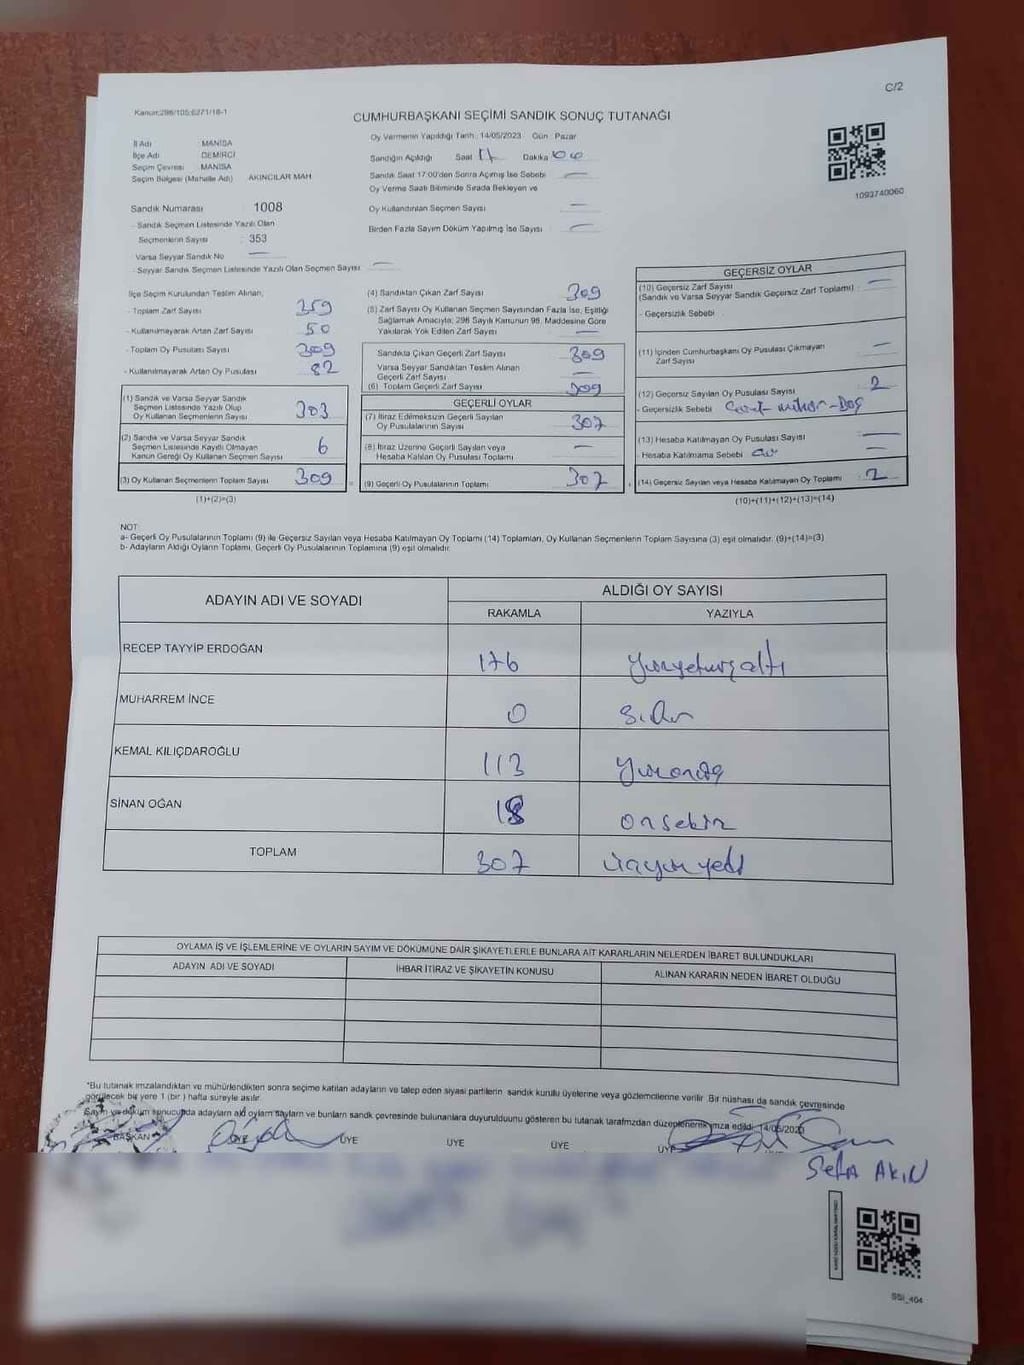 C/2
Kanun:298/105;6271/18-1
CUMHURBAŞKANI SEÇİMİ SANDIK SONUÇ TUTANAĞI
Oy Vermenin Yapıldığı Tarih : 14/05/2023 Gün : Pazar
İl Adı : MANİSA
İlçe Adı : DEMİRCİ
Seçim Çevresi : MANİSA
Seçim Bölgesi (Mahalle Adı) : AKINCILAR MAH
Sandığın Açıldığı Saat Dakika 00
Sandık Saat 17:00'den Sonra Açılmış İse Sebebi
Oy Verme Saati Bitiminde Sırada Bekleyen ve
Oy Kullandırılan Seçmen Sayısı
Birden Fazla Sayım Döküm Yapılmış İse Sayısı
1093740060
Sandık Numarası 1008
- Sandık Seçmen Listesinde Yazılı Olan
Seçmenlerin Sayısı : 353
- Varsa Seyyar Sandık No
- Seyyar Sandık Seçmen Listesinde Yazılı Olan Seçmen Sayısı
İlçe Seçim Kurulundan Teslim Alınan;
- Toplam Zarf Sayısı 359
- Kullanılmayarak Artan Zarf Sayısı 50
- Toplam Oy Pusulası Sayısı
- Kullanılmayarak Artan Oy Pusulası 82
(1) Sandık ve Varsa Seyyar Sandık
Seçmen Listesinde Yazılı Olup
Oy Kullanan Seçmenlerin Sayısı 303
(2) Sandık ve Varsa Seyyar Sandık
Seçmen Listesinde Kayıtlı Olmayan
Kanun Gereği Oy Kullanan Seçmen Sayısı 6
(3) Oy Kullanan Seçmenlerin Toplam Sayısı 309
(1)+(2)=(3)
(4) Sandıktan Çıkan Zarf Sayısı 309
(5) Zarf Sayısı Oy Kullanan Seçmen Sayısından Fazla İse, Eşitliği
Sağlamak Amacıyla; 298 Sayılı Kanunun 98. Maddesine Göre
Yakılarak Yok Edilen Zarf Sayısı
Sandıkta Çıkan Geçerli Zarf Sayısı 309
Varsa Seyyar Sandıktan Teslim Alınan
Geçerli Zarf Sayısı
(6) Toplam Geçerli Zarf Sayısı 309
GEÇERLİ OYLAR
(7) İtiraz Edilmeksizin Geçerli Sayılan
Oy Pusulalarının Sayısı 307
(8) İtiraz Üzerine Geçerli Sayılan veya
Hesaba Katılan Oy Pusulası Toplamı
(9) Geçerli Oy Pusulalarının Toplamı 307
GEÇERSİZ OYLAR
(10) Geçersiz Zarf Sayısı
(Sandık ve Varsa Seyyar Sandık Geçersiz Zarf Toplamı)
- Geçersizlik Sebebi
(11) İçinden Cumhurbaşkanı Oy Pusulası Çıkmayan
Zarf Sayısı
(12) Geçersiz Sayılan Oy Pusulası Sayısı 2
- Geçersizlik Sebebi
(13) Hesaba Katılmayan Oy Pusulası Sayısı
- Hesaba Katılmama Sebebi
(14) Geçersiz Sayılan veya Hesaba Katılmayan Oy Toplamı 2
(10)+(11)+(12)+(13)=(14)
NOT:
a- Geçerli Oy Pusulalarının Toplamı (9) ile Geçersiz Sayılan veya Hesaba Katılmayan Oy Toplamı (14) Toplamları, Oy Kullanan Seçmenlerin Toplam Sayısına (3) eşit olmalıdır. (9)+(14)=(3)
b- Adayların Aldığı Oyların Toplamı, Geçerli Oy Pusulalarının Toplamına (9) eşit olmalıdır.
ADAYIN ADI VE SOYADI
ALDIĞI OY SAYISI
RAKAMLA YAZIYLA
RECEP TAYYİP ERDOĞAN 176 yüzyetmişaltı
MUHARREM İNCE 0 sıfır
KEMAL KILIÇDAROĞLU 113
SİNAN OĞAN 18 onsekiz
TOPLAM 307 üçyüzyedi
OYLAMA İŞ VE İŞLEMLERİNE VE OYLARIN SAYIM VE DÖKÜMÜNE DAİR ŞİKAYETLERLE BUNLARA AİT KARARLARIN NELERDEN İBARET BULUNDUKLARI
ADAYIN ADI VE SOYADI İHBAR İTİRAZ VE ŞİKAYETİN KONUSU ALINAN KARARIN NEDEN İBARET OLDUĞU
*Bu tutanak imzalandıktan ve mühürlendikten sonra seçime katılan adayların ve talep eden siyasi partilerin sandık kurulu üyelerine veya gözlemcilerine verilir. Bir nüshası da sandık çevresinde
görülecek bir yere 1 (bir) hafta süreyle asılır.
Sayım ve döküm sonucunda adayların ald oyların sayıları ve bunların sandık çevresinde bulunanlara duyurulduunu gösteren bu tutanak tarafımızdan düzenlenerek imza edildi. 14/05/2023
BAŞKAN ÜYE ÜYE ÜYE ÜYE ÜYE
Sefa AKIN
SSİ_404